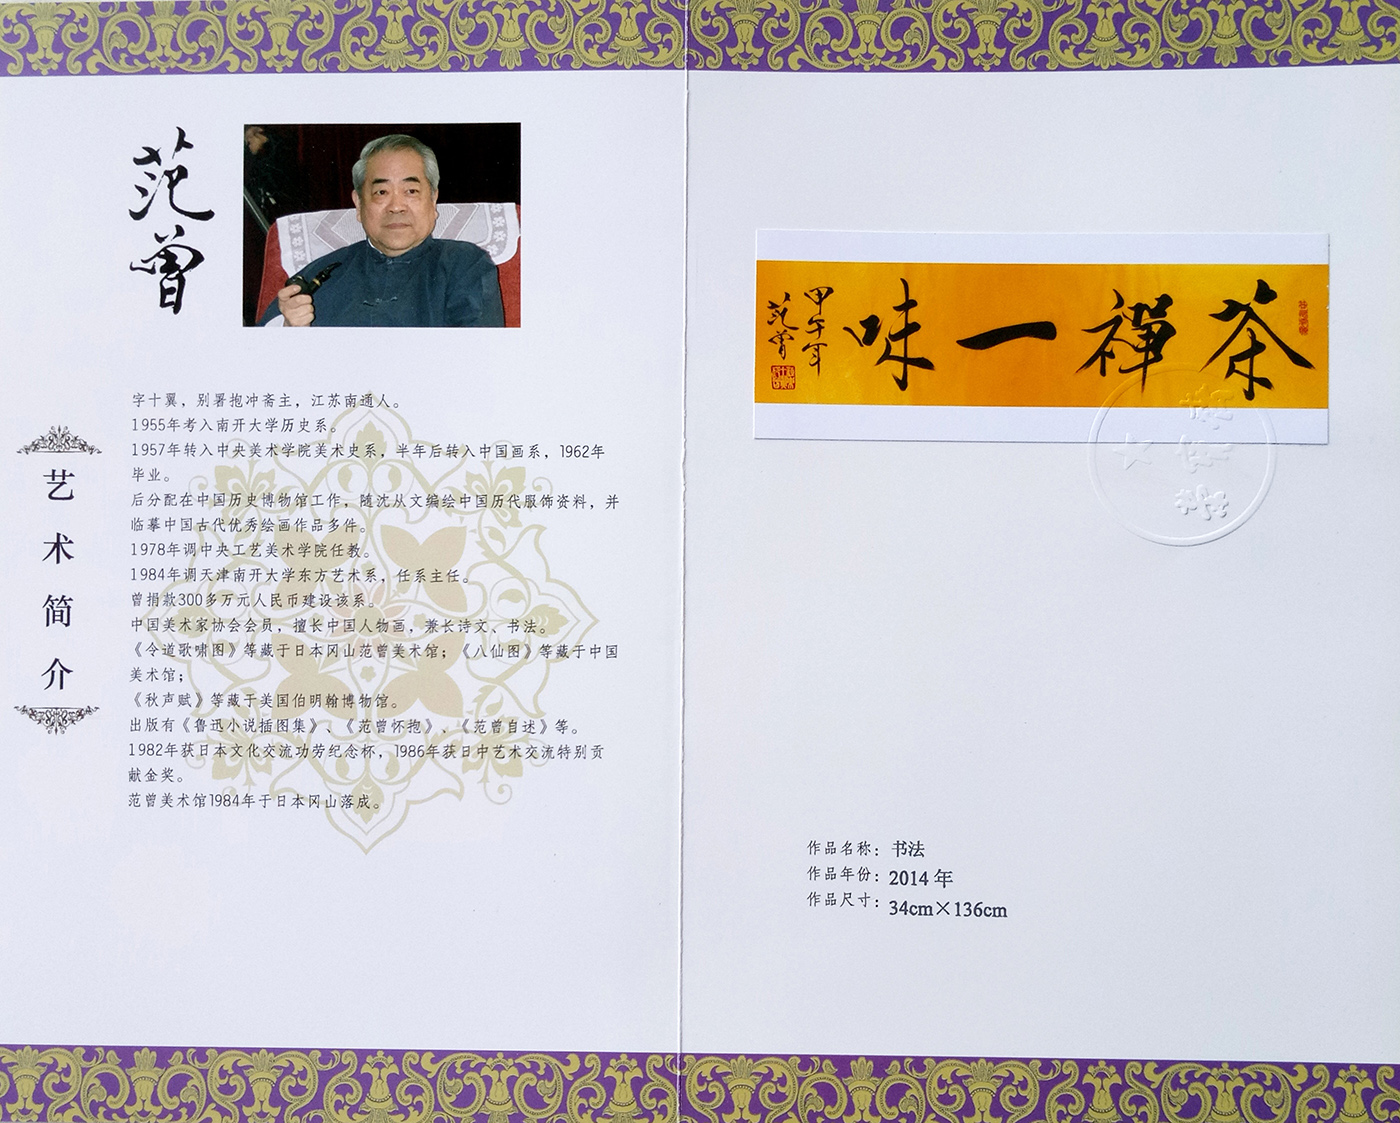 范曾
艺术简介
字十翼，别署抱冲斋主，江苏南通人。
1955年考入南开大学历史系。
1957年转入中央美术学院美术史系，半年后转入中国画系，1962年
毕业。
后分配在中国历史博物馆工作，随沈从文编绘中国历代服饰资料，并
临摹中国古代优秀绘画作品多件。
1978年调中央工艺美术学院任教。
1984年调天津南开大学东方艺术系，任系主任。
曾捐款300多万元人民币建设该系。
中国美术家协会会员，擅长中国人物画，兼长诗文、书法。
《令道歌啸图》等藏于日本冈山范曾美术馆；《八仙图》等藏于中国
美术馆；
《秋声赋》等藏于美国伯明翰博物馆。
出版有《鲁迅小说插图集》、《范曾怀抱》、《范曾自述》等。
1982年获日本文化交流功劳纪念杯，1986年获日中艺术交流特别贡
献金奖。
范曾美术馆1984年于日本冈山落成。
茶禪一味
甲午年
范曾
作品名称：书法
作品年份：2014 年
作品尺寸：34cm×136cm